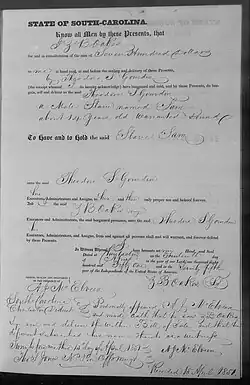 STATE OF SOUTH-CAROLINA.
Know all Men by these Presents, that
I Z B Oakes
for and in consideration of the sum of Seven Hundred Dollars
to me in hand paid, at and before the sealing and delivery of these Presents,
by Theodore S Gourdin
(the receipt whereof I do hereby acknowledge) have bargained and sold, and by these Presents, do bargain, sell and deliver to the said Theodore S Gourdin
a Male Slave named Sam
about 14 years old Warranted Sound
To Have and to Hold the said Slave Sam
unto the said Theodore S Gourdin
his
Executors, Administrators and Assigns, to his and their only proper use and behoof forever.
And I the said Z B Oakes my
Executors and Administrators, the said bargained premises, unto the said Theodore S Gourdin
his
Executors, Administrators and Assigns, from and against all persons shall and will warrant, and forever defend by these Presents.
In Witness Whereof, I have hereunto set my Hand and Seal
Dated at Charleston on the
in the year of our Lord one thousand eight hundred and fifty and in the Seventy fifth
year of the Independence of the United States of America.
Z B Oakes
A J McElveen
South Carolina
Charleston District
Personally appeared A J McElveen
and made oath that he saw Z B Oakes
sign and deliver the within Bill of Sale and that this
Sworn before me this 15 day of April 1851 A J McElveen
Recorded 15 April 1851